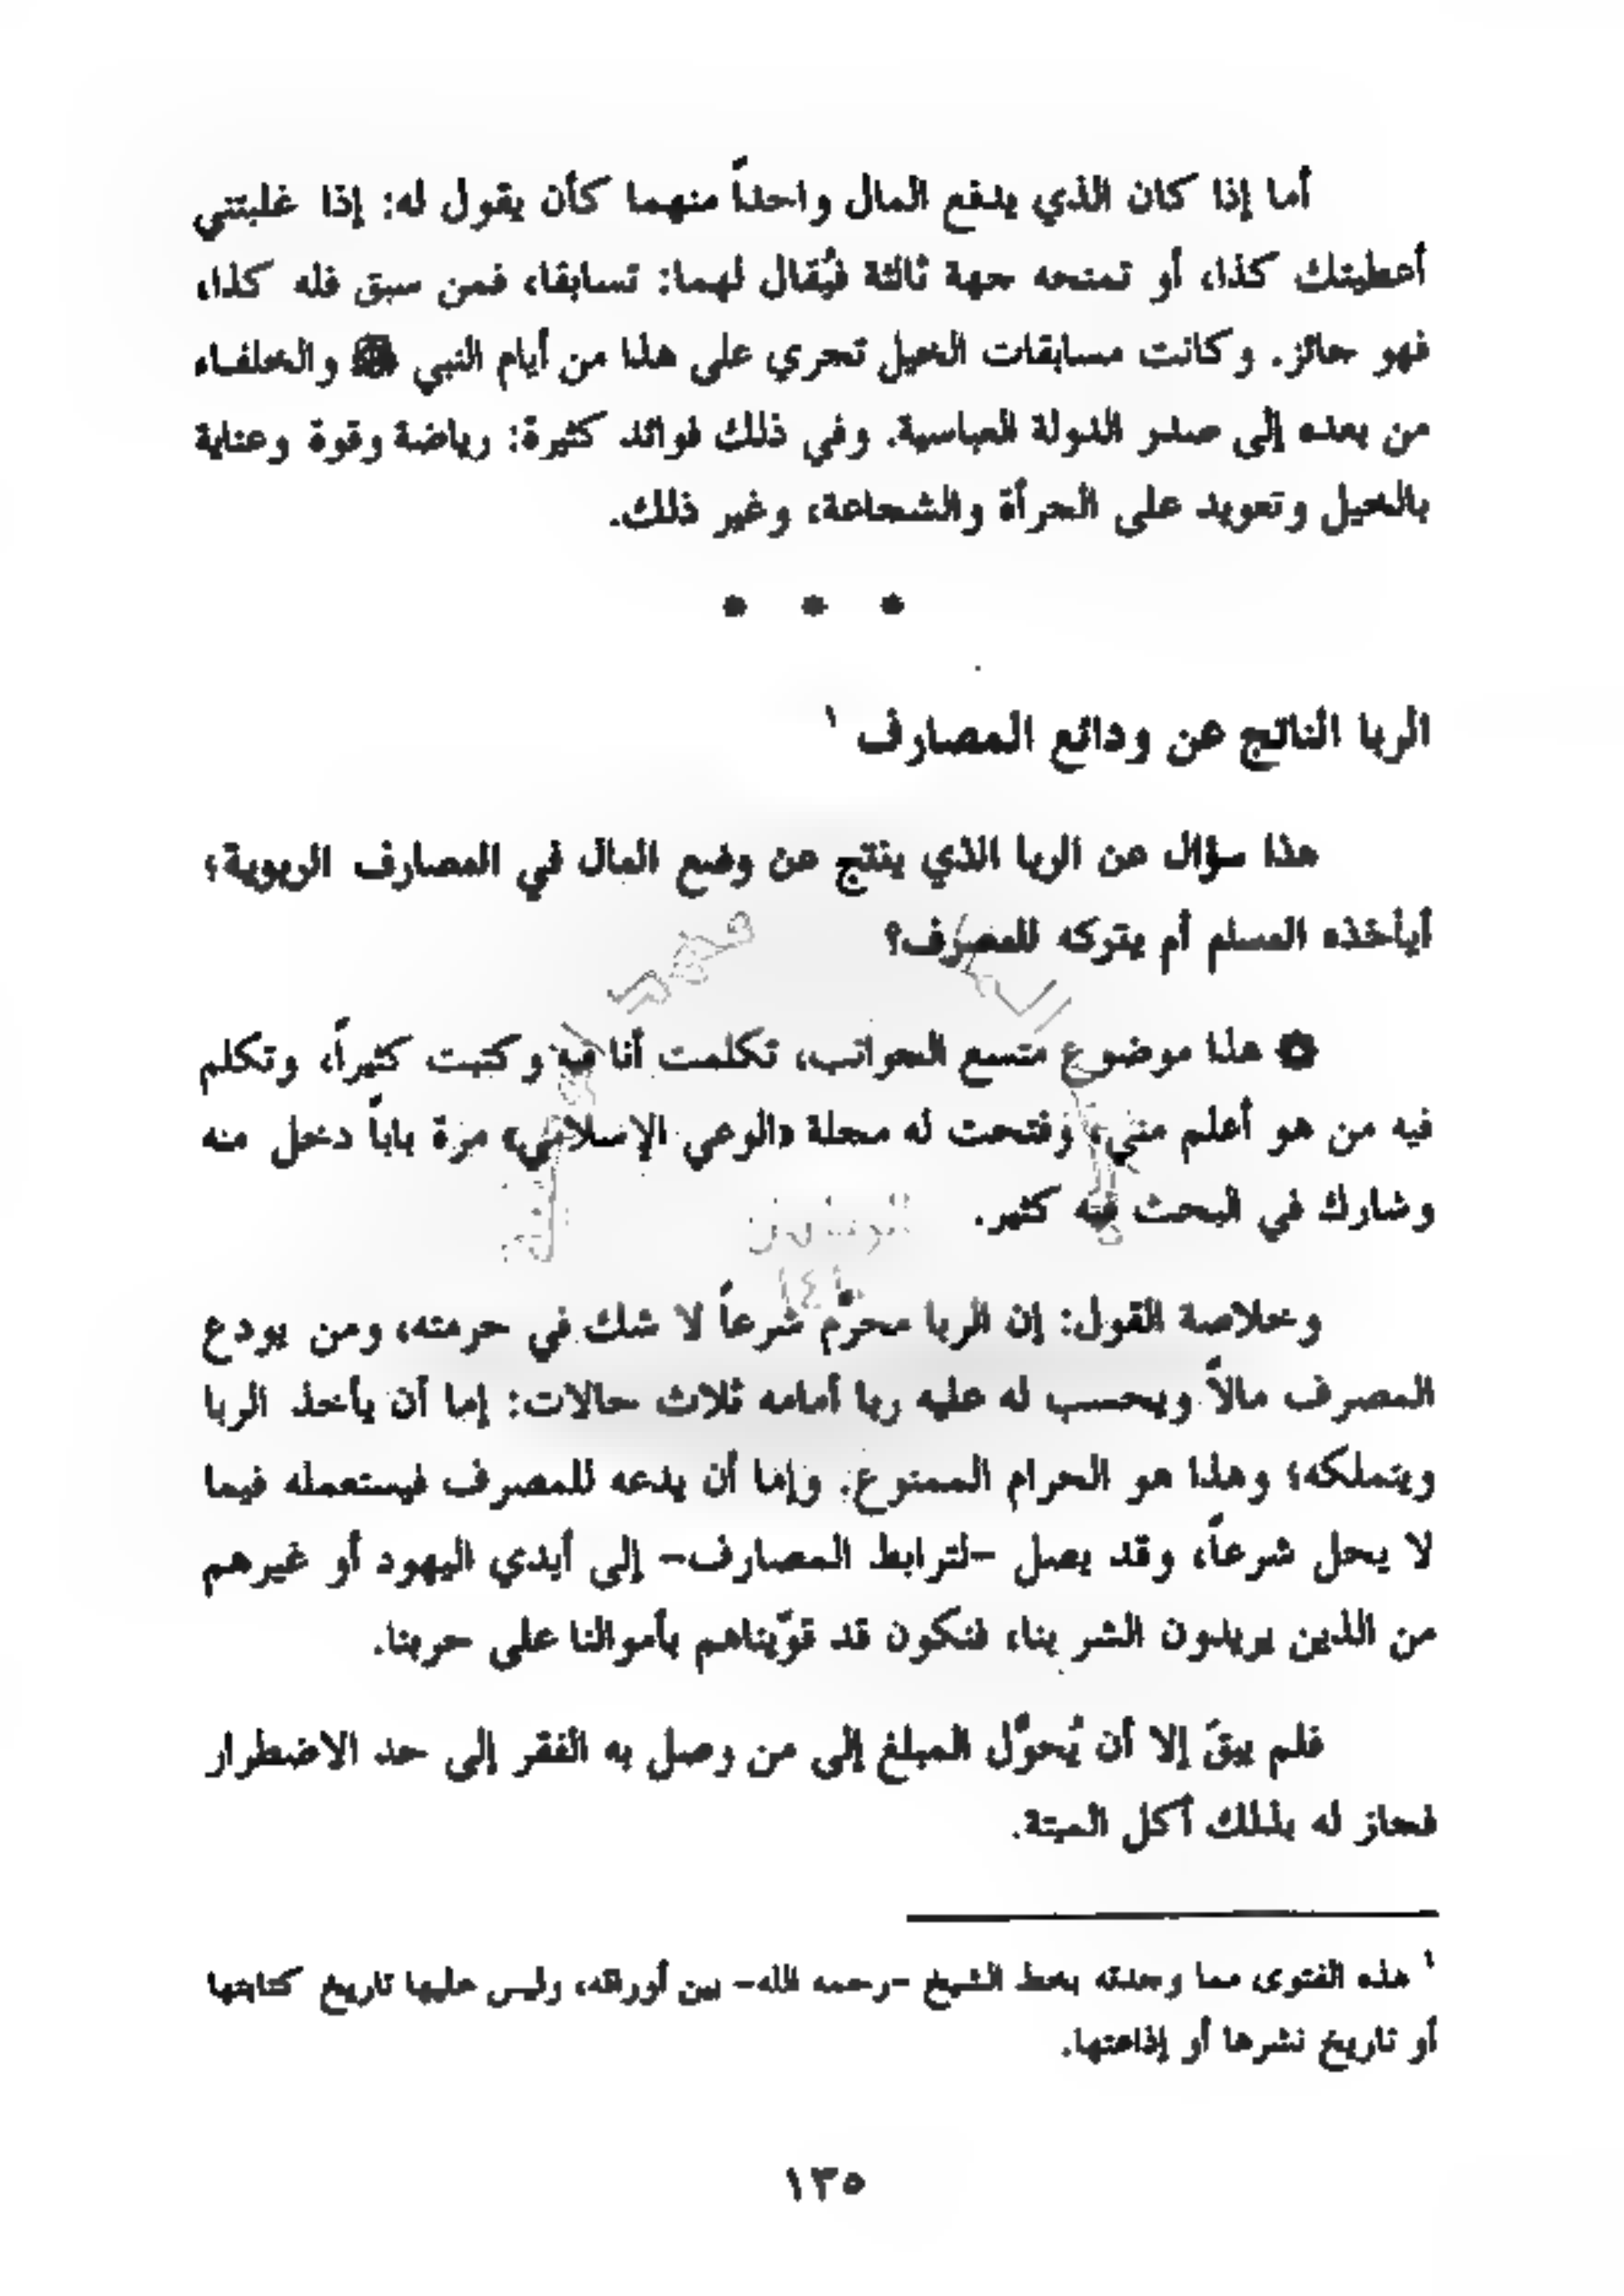 أما إذا كان الذي يدفع المال واحداً منهما كأن يقول له: إذا غلبتني
أعطيتك كذا، أو تمنحه جهة ثالثة فيُقال لهما: تسابقا، فمن سبق فله كذا،
فهو جائز. وكانت مسابقات الخيل تجري على هذا من أيام النبي ﷺ والخلفاء
من بعده إلى صدر الدولة العباسية. وفي ذلك فوائد كثيرة: رياضة وقوة وعناية
بالخيل وتعويد على الجرأة والشجاعة، وغير ذلك.
* * *
الربا الناتج عن ودائع المصارف ١
هذا سؤال عن الربا الذي ينتج عن وضع المال في المصارف الربوية؛
أيأخذه المسلم أم يتركه للمصرف؟
هذا موضوع متسع الجوانب، تكلمت أنا فيه وكتبت كثيراً، وتكلم
فيه من هو أعلم مني، وفتحت له مجلة «الوعي الإسلامي» مرة باباً دخل منه
وشارك في البحث فيه كثير.
وخلاصة القول: إن الربا محرّم شرعاً لا شك في حرمته، ومن يودع
المصرف مالاً ويحسب له عليه ربا أمامه ثلاث حالات: إما أن يأخذ الربا
ويتملكه؛ وهذا هو الحرام الممنوع. وإما أن يدعه للمصرف فيستعمله فيما
لا يحل شرعاً، وقد يصل -لترابط المصارف- إلى أيدي اليهود أو غيرهم
من الذين يريدون الشر بنا، فنكون قد قوّيناهم بأموالنا على حربنا.
فلم يبقَ إلا أن يُحوَّل المبلغ إلى من وصل به الفقر إلى حد الاضطرار
فجاز له بذلك أكل الميتة.
١ هذه الفتوى مما وجدته بخط الشيخ -رحمه الله- بين أوراقه، وليس عليها تاريخ كتابتها
أو تاريخ نشرها أو إذاعتها.
١٣٥